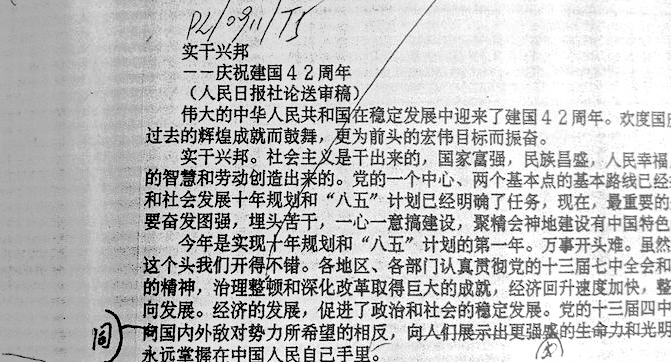 PL/0911/T5
实干兴邦
——庆祝建国42周年
（人民日报社论送审稿）
伟大的中华人民共和国在稳定发展中迎来了建国42周年。欢度国庆
过去的辉煌成就而鼓舞，更为前头的宏伟目标而振奋。
实干兴邦。社会主义是干出来的，国家富强，民族昌盛，人民幸福
的智慧和劳动创造出来的。党的一个中心、两个基本点的基本路线已经
和社会发展十年规划和“八五”计划已经明确了任务，现在，最重要的
要奋发图强，埋头苦干，一心一意搞建设，聚精会神地建设有中国特色
今年是实现十年规划和“八五”计划的第一年。万事开头难。虽然
这个头我们开得不错。各地区、各部门认真贯彻党的十三届七中全会和
的精神，治理整顿和深化改革取得巨大的成就，经济回升速度加快，整
向发展。经济的发展，促进了政治和社会的稳定发展。党的十三届四中
同
向国内外敌对势力所希望的相反，向人们展示出更强盛的生命力和光明
永远掌握在中国人民自己手里。